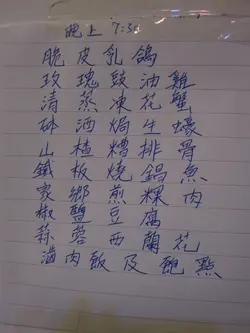 晚上 7:30
脆皮乳鴿
玫瑰豉油雞
清蒸凍花蟹
砵酒焗生蠔
山楂糟排骨
鐵板燒鍋魚
家鄉煎粿肉
椒鹽豆腐
蒜蓉西蘭花
滷肉飯及甜點